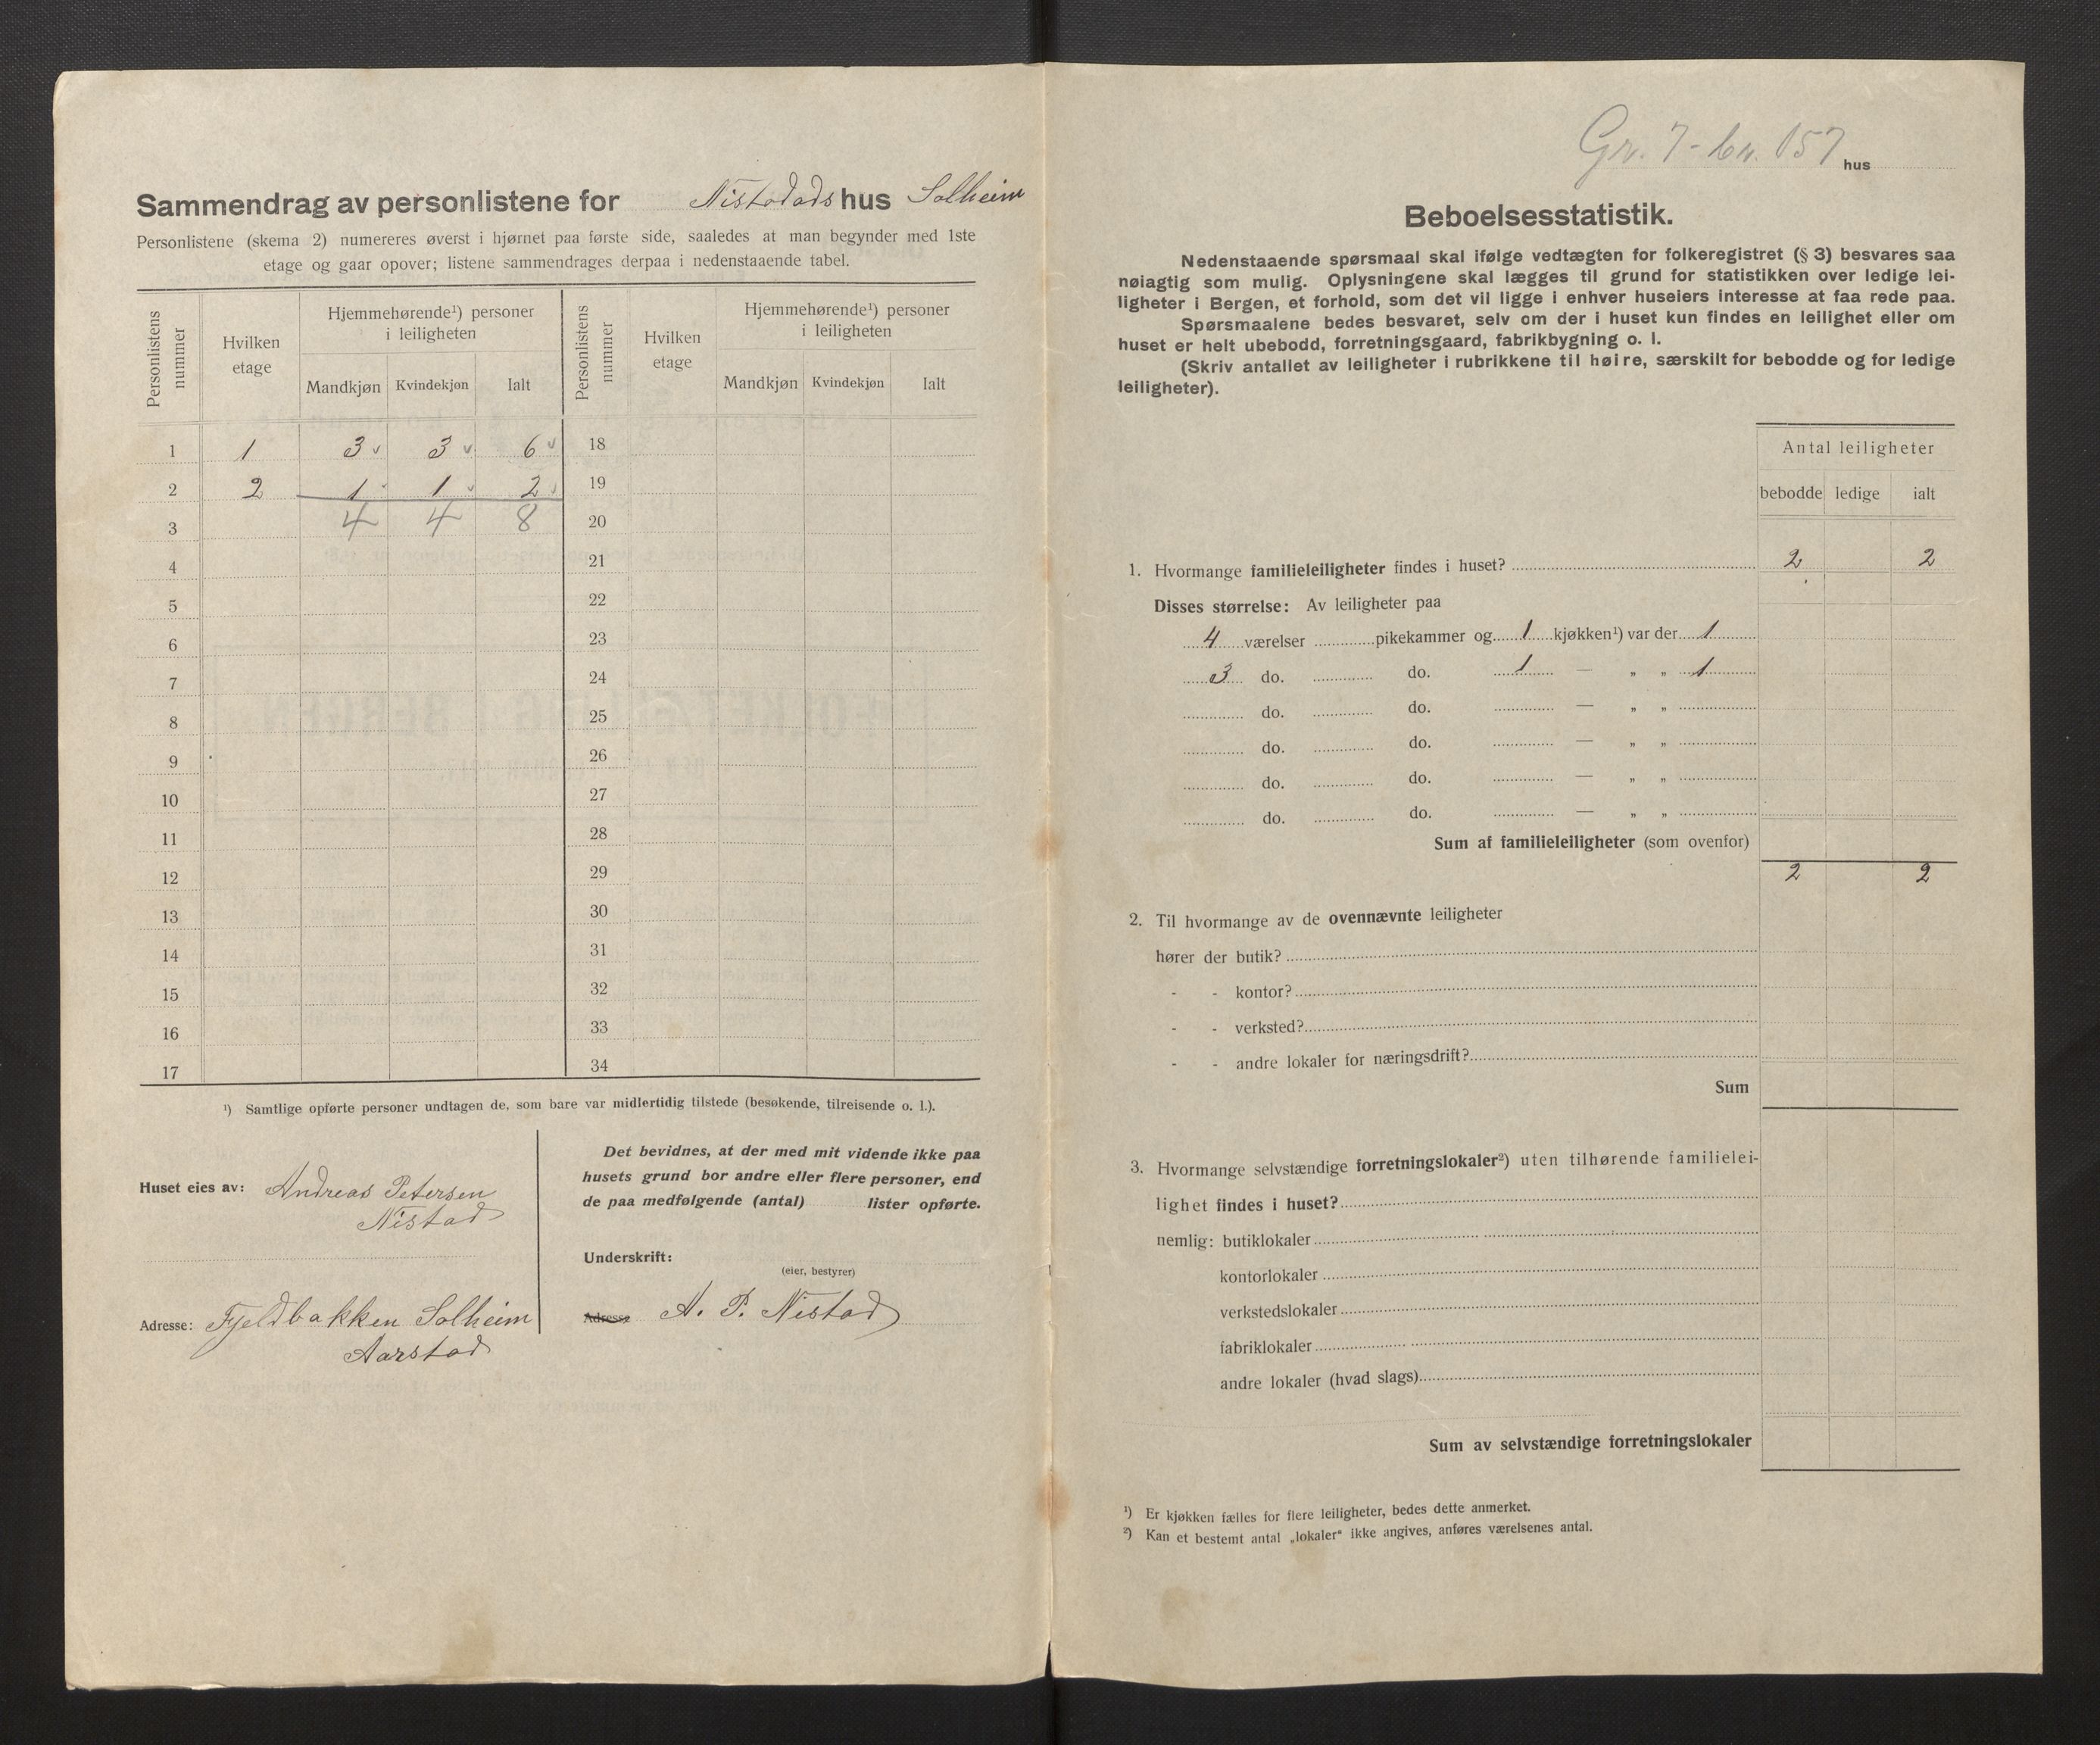 Sammendrag av personlistene for Nistadads hus Solheim
Personlistene (skema 2) numereres øverst i hjørnet paa første side, saaledes at man begynder med 1ste
etage og gaar opover; listene sammendrages derpaa i nedenstaaende tabel.
Personlistens nummer
Hvilken etage
Hjemmehørende¹) personer i leiligheten
Mandkjøn Kvindekjøn Ialt
Personlistens nummer
Hvilken etage
Hjemmehørende¹) personer i leiligheten
Mandkjøn Kvindekjøn Ialt
1 1 3 3 6 18
2 2 1 1 2 19
3 4 4 8 20
4 21
5 22
6 23
7 24
8 25
9 26
10 27
11 28
12 29
13 30
14 31
15 32
16 33
17 34
¹) Samtlige opførte personer undtagen de, som bare var midlertidig tilstede (besøkende, tilreisende o. l.).
Huset eies av: Andreas Petersen
Nistad
Adresse: Fjeldbakken Solheim
Aarstad
Det bevidnes, at der med mit vidende ikke paa
husets grund bor andre eller flere personer, end
de paa medfølgende (antal) lister opførte.
Underskrift:
(eier, bestyrer)
Adresse A. P. Nistad
Gr. 7 - bn. 157 hus
Beboelsesstatistik.
Nedenstaaende spørsmaal skal ifølge vedtægten for folkeregistret (§ 3) besvares saa
nøiagtig som mulig. Oplysningene skal lægges til grund for statistikken over ledige lei-
ligheter i Bergen, et forhold, som det vil ligge i enhver huseiers interesse at faa rede paa.
Spørsmaalene bedes besvaret, selv om der i huset kun findes en leilighet eller om
huset er helt ubebodd, forretningsgaard, fabrikbygning o. l.
(Skriv antallet av leiligheter i rubrikkene til høire, særskilt for bebodde og for ledige
leiligheter).
Antal leiligheter
bebodde ledige ialt
1. Hvormange familieleiligheter findes i huset? 2 2
Disses størrelse: Av leiligheter paa
4 værelser pikekammer og 1 kjøkken¹) var der 1
3 do. do. 1 — „ „ 1
do. do. — „ „
do. do. — „ „
do. do. — „ „
do. do. — „ „
Sum af familieleiligheter (som ovenfor)
2 2
2. Til hvormange av de ovennævnte leiligheter
hører der butik?
- - kontor?
- - verksted?
- - andre lokaler for næringsdrift?
Sum
3. Hvormange selvstændige forretningslokaler²) uten tilhørende familielei-
lighet findes i huset?
nemlig: butiklokaler
kontorlokaler
verkstedslokaler
fabriklokaler
andre lokaler (hvad slags)
Sum av selvstændige forretningslokaler
¹) Er kjøkken fælles for flere leiligheter, bedes dette anmerket.
²) Kan et bestemt antal „lokaler“ ikke angives, anføres værelsenes antal.